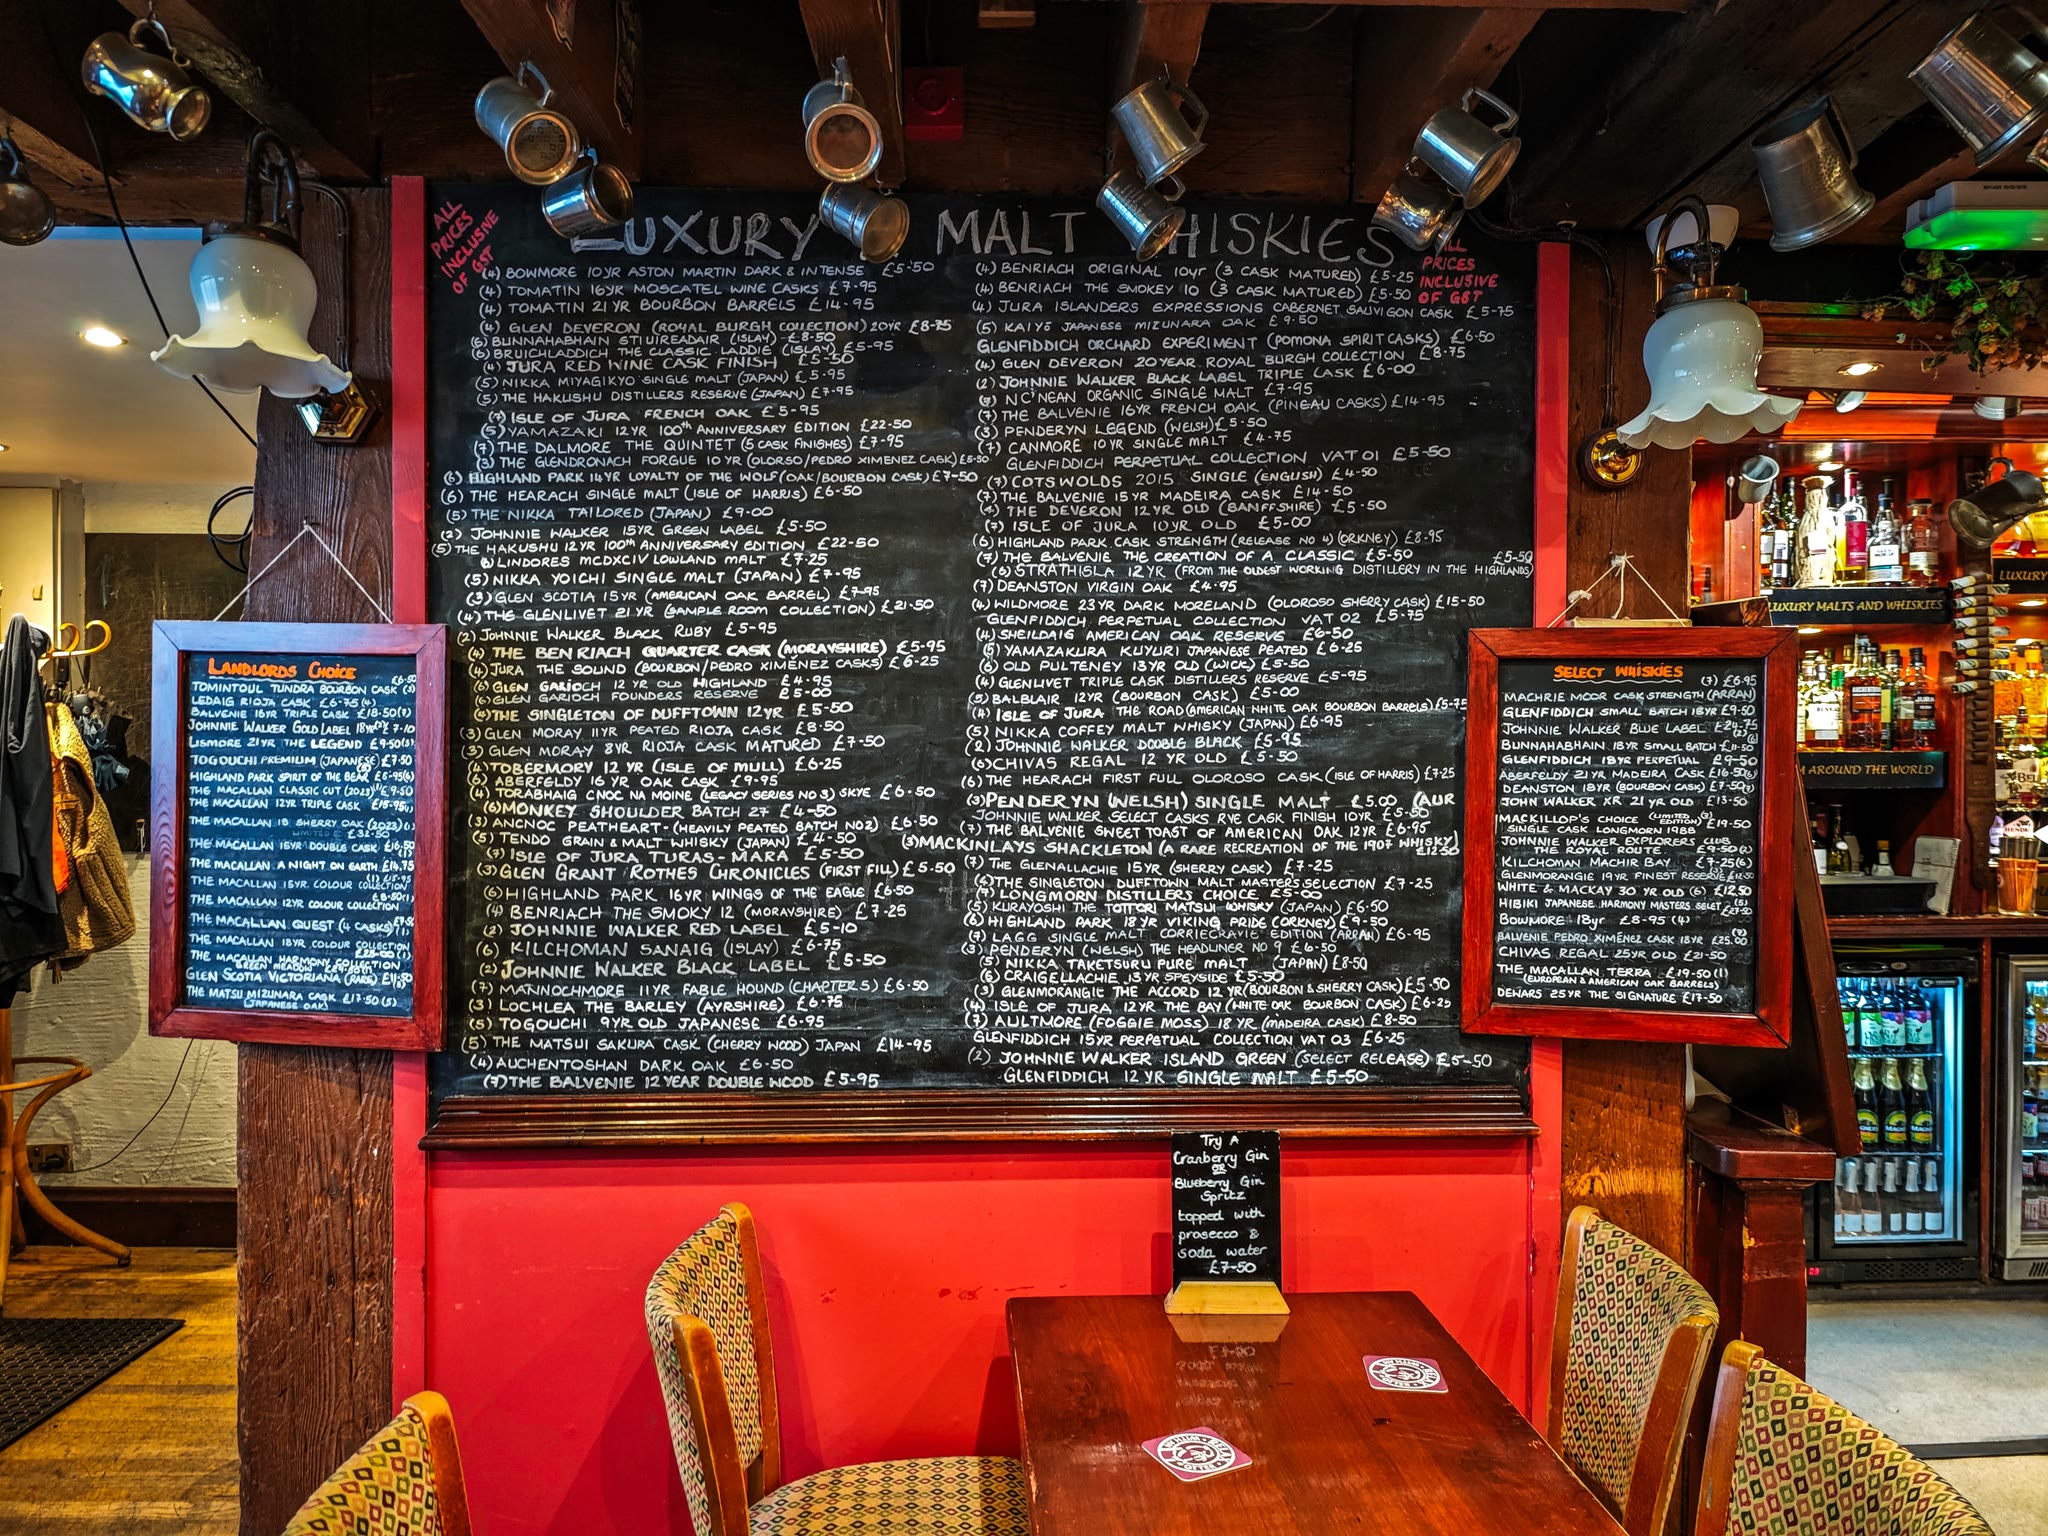 ALL
PRICES
INCLUSIVE
OF GST
LUXURY MALT WHISKIES
ALL
PRICES
INCLUSIVE
OF GST
(4) BOWMORE 10YR ASTON MARTIN DARK & INTENSE £5-50
(4) TOMATIN 16YR MOSCATEL WINE CASKS £7-95
(4) TOMATIN 21YR BOURBON BARRELS £14-95
(4) GLEN DEVERON (ROYAL BURGH COLLECTION) 20YR £8-75
(6) BUNNAHABHAIN STIUIREADAIR (ISLAY) £8-50
(6) BRUICHLADDICH THE CLASSIC LADDIE (ISLAY) £5-95
(4) JURA RED WINE CASK FINISH £5-50
(5) NIKKA MIYAGIKYO SINGLE MALT (JAPAN) £5-95
(5) THE HAKUSHU DISTILLERS RESERVE (JAPAN) £7-95
(7) ISLE OF JURA FRENCH OAK £5-95
(5) YAMAZAKI 12YR 100th ANNIVERSARY EDITION £22-50
(7) THE DALMORE THE QUINTET (5 CASK FINISHES) £7-95
(3) THE GLENDRONACH FORGUE 10YR (OLORSO/PEDRO XIMENEZ CASK) £5-50
(6) HIGHLAND PARK 14YR LOYALTY OF THE WOLF (OAK/BOURBON CASK) £7-50
(6) THE HEARACH SINGLE MALT (ISLE OF HARRIS) £6-50
(5) THE NIKKA TAILORED (JAPAN) £9-00
(2) JOHNNIE WALKER 15YR GREEN LABEL £5-50
(5) THE HAKUSHU 12YR 100th ANNIVERSARY EDITION £22-50
(6) LINDORES MCDXCIV LOWLAND MALT £7.25
(5) NIKKA YOICHI SINGLE MALT (JAPAN) £7-95
(3) GLEN SCOTIA 15YR (AMERICAN OAK BARREL) £7-95
(4) THE GLENLIVET 21YR (SAMPLE ROOM COLLECTION) £21-50
(2) JOHNNIE WALKER BLACK RUBY £5-95
(4) THE BENRIACH QUARTER CASK (MORAYSHIRE) £5-95
(4) JURA THE SOUND (BOURBON/PEDRO XIMÉNEZ CASKS) £6-25
(6) GLEN GARIOCH 12YR OLD HIGHLAND £4-95
(6) GLEN GARIOCH FOUNDERS RESERVE £5-00
(4) THE SINGLETON OF DUFFTOWN 12YR £5-50
(3) GLEN MORAY 11YR PEATED RIOJA CASK £8-50
(3) GLEN MORAY 8YR RIOJA CASK MATURED £7-50
(4) TOBERMORY 12YR (ISLE OF MULL) £6-25
(6) ABERFELDY 16YR OAK CASK £9-95
(4) TORABHAIG CNOC NA MOINE (LEGACY SERIES NO 3) SKYE £6-50
(6) MONKEY SHOULDER BATCH 27 £4-50
(3) ANCNOC PEATHEART-(HEAVILY PEATED BATCH NO2) £6-50
(5) TENDO GRAIN & MALT WHISKY (JAPAN) £4-50
(7) ISLE OF JURA TURAS-MARA £5-50
(3) GLEN GRANT ROTHES CHRONICLES (FIRST FILL) £5-50
(6) HIGHLAND PARK 16YR WINGS OF THE EAGLE £6-50
(4) BENRIACH THE SMOKY 12 (MORAYSHIRE) £7-25
(2) JOHNNIE WALKER RED LABEL £5-10
(6) KILCHOMAN SANAIG (ISLAY) £6-75
(2) JOHNNIE WALKER BLACK LABEL £5-50
(7) MANNOCHMORE 11YR FABLE HOUND (CHAPTER 5) £6-50
(3) LOCHLEA THE BARLEY (AYRSHIRE) £6-75
(5) TOGOUCHI 9YR OLD JAPANESE £6-95
(5) THE MATSUI SAKURA CASK (CHERRY WOOD) JAPAN £14-95
(4) AUCHENTOSHAN DARK OAK £6-50
(7) THE BALVENIE 12 YEAR DOUBLE WOOD £5-95
(4) BENRIACH ORIGINAL 10yr (3 CASK MATURED) £5-25
(4) BENRIACH THE SMOKEY 10 (3 CASK MATURED) £5-50
(4) JURA ISLANDERS EXPRESSIONS CABERNET SAUVIGON CASK £5-75
(5) KAIYŌ JAPANESE MIZUNARA OAK £9-50
GLENFIDDICH ORCHARD EXPERIMENT (POMONA SPIRIT CASKS) £6-50
(4) GLEN DEVERON 20YEAR ROYAL BURGH COLLECTION £8-75
(2) JOHNNIE WALKER BLACK LABEL TRIPLE CASK £6-00
NC'NEAN ORGANIC SINGLE MALT £7-95
(7) THE BALVENIE 16YR FRENCH OAK (PINEAU CASKS) £14-95
(3) PENDERYN LEGEND (WELSH) £5-50
(7) CANMORE 10YR SINGLE MALT £4-75
GLENFIDDICH PERPETUAL COLLECTION VAT 01 £5-50
(7) COTSWOLDS 2015 SINGLE (ENGLISH) £4-50
(7) THE BALVENIE 15YR MADEIRA CASK £14-50
(4) THE DEVERON 12YR OLD (BANFFSHIRE) £5-50
(7) ISLE OF JURA 10YR OLD £5-00
(6) HIGHLAND PARK CASK STRENGTH (RELEASE NO 4) (ORKNEY) £8-95
(7) THE BALVENIE THE CREATION OF A CLASSIC £5-50
(6) STRATHISLA 12YR (FROM THE OLDEST WORKING DISTILLERY IN THE HIGHLANDS) £5-50
(7) DEANSTON VIRGIN OAK £4-95
(4) WILDMORE 23YR DARK MORELAND (OLOROSO SHERRY CASK) £15-50
GLENFIDDICH PERPETUAL COLLECTION VAT 02 £5-75
(4) SHEILDAIG AMERICAN OAK RESERVE £6-50
(5) YAMAZAKURA KUYURI JAPANESE PEATED £6-25
(6) OLD PULTENEY 13YR OLD (WICK) £5-50
(4) GLENLIVET TRIPLE CASK DISTILLERS RESERVE £5-95
(5) BALBLAIR 12YR (BOURBON CASK) £5-00
(4) ISLE OF JURA THE ROAD (AMERICAN WHITE OAK BOURBON BARRELS) £5-75
(5) NIKKA COFFEY MALT WHISKY (JAPAN) £6-95
(2) JOHNNIE WALKER DOUBLE BLACK £5-95
(6) CHIVAS REGAL 12YR OLD £5-50
(6) THE HEARACH FIRST FULL OLOROSO CASK (ISLE OF HARRIS) £7-25
(3) PENDERYN (WELSH) SINGLE MALT £5.00 (AUR
JOHNNIE WALKER SELECT CASKS RYE CASK FINISH 10YR £5-50
(7) THE BALVENIE SWEET TOAST OF AMERICAN OAK 12YR £6-95
(3) MACKINLAYS SHACKLETON (A RARE RECREATION OF THE 1907 WHISKY) £12-50
(7) THE GLENALLACHIE 15YR (SHERRY CASK) £7-25
(4) THE SINGLETON DUFFTOWN MALT MASTERS SELECTION £7-25
(7) LONGMORN DISTILLERS CHOICE £5-00
(5) KURAYOSHI THE TOTTORI MATSUI WHISKY (JAPAN) £6-50
(6) HIGHLAND PARK 18YR VIKING PRIDE (ORKNEY) £9-50
(7) LAGG SINGLE MALT CORRIECRAVIE EDITION (ARRAN) £6-95
(3) PENDERYN (WELSH) THE HEADLINER NO 9 £6-50
(5) NIKKA TAKETSURU PURE MALT (JAPAN) £8-50
(6) CRAIGELLACHIE 13YR SPEYSIDE £5-50
(3) GLENMORANGIE THE ACCORD 12YR (BOURBON & SHERRY CASK) £5.50
(4) ISLE OF JURA 12YR THE BAY (WHITE OAK BOURBON CASK) £6-25
(7) AULTMORE (FOGGIE MOSS) 18YR (MADEIRA CASK) £8-50
GLENFIDDICH 15YR PERPETUAL COLLECTION VAT 03 £6-25
(2) JOHNNIE WALKER ISLAND GREEN (SELECT RELEASE) £5-50
GLENFIDDICH 12YR SINGLE MALT £5-50
LANDLORDS CHOICE
£6-50
TOMINTOUL TUNDRA BOURBON CASK (3)
LEDAIG RIOJA CASK £6-75 (4)
BALVENIE 16YR TRIPLE CASK £18-50 (7)
JOHNNIE WALKER GOLD LABEL 18YR £7-10
LISMORE 21YR THE LEGEND £9-50 (3)
TOGOUCHI PREMIUM (JAPANESE) £7-50
HIGHLAND PARK SPIRIT OF THE BEAR £5-95 (6)
THE MACALLAN CLASSIC CUT (2023) £9-50
THE MACALLAN 12YR TRIPLE CASK £15-95
THE MACALLAN 18 SHERRY OAK (2023) (1)
LIMITED £32-50
THE MACALLAN 15YR DOUBLE CASK £16-50
(1)
THE MACALLAN A NIGHT ON EARTH £14.75
(1) £15-95
THE MACALLAN 15YR. COLOUR COLLECTION
THE MACALLAN 12YR. COLOUR COLLECTION
THE MACALLAN QUEST (4 CASKS) £7-50
(1)
THE MACALLAN 18YR COLOUR COLLECTION
£25-00 (1)
THE MACALLAN HARMONY COLLECTION
GREEN MEADOW
GLEN SCOTIA VICTORIANA (RARE) £11-50
THE MATSU MIZUNARA CASK £17-50 (5)
(JAPANESE OAK)
SELECT WHISKIES
(7) £6.95
MACHRIE MOOR CASK STRENGTH (ARRAN)
GLENFIDDICH SMALL BATCH 18YR £9-50
JOHNNIE WALKER BLUE LABEL £24-75
(2)
BUNNAHABHAIN 18YR SMALL BATCH £11-50
GLENFIDDICH 18YR PERPETUAL £9-50
ABERFELDY 21YR MADEIRA CASK £16-50
DEANSTON 18YR (BOURBON CASK) £7-50
JOHN WALKER XR 21YR OLD £13-50
MACKILLOP'S CHOICE (LIMITED EDITION) (3) £19-50
SINGLE CASK LONGMORN 1988
JOHNNIE WALKER EXPLORERS CLUB
THE ROYAL ROUTE
KILCHOMAN MACHIR BAY £7-25 (6)
GLENMORANGIE 19YR FINEST RESERVE £12-50
WHITE & MACKAY 30YR OLD (6) £12.50
HIBIKI JAPANESE HARMONY MASTERS SELET (5)
£27-50
BOWMORE 18yr £8-95 (4)
(7)
BALVENIE PEDRO XIMÉNEZ CASK 18YR £25.00
CHIVAS REGAL 25YR OLD £21-50
THE MACALLAN TERRA £19-50 (1)
(EUROPEAN & AMERICAN OAK BARRELS)
DEWARS 25YR THE SIGNATURE £17-50
LUXURY
LUXURY MALTS AND WHISKIES
AROUND THE WORLD
Try A
Cranberry Gin
OR
Blueberry Gin
Spritz
topped with
prosecco &
soda water
£7-50